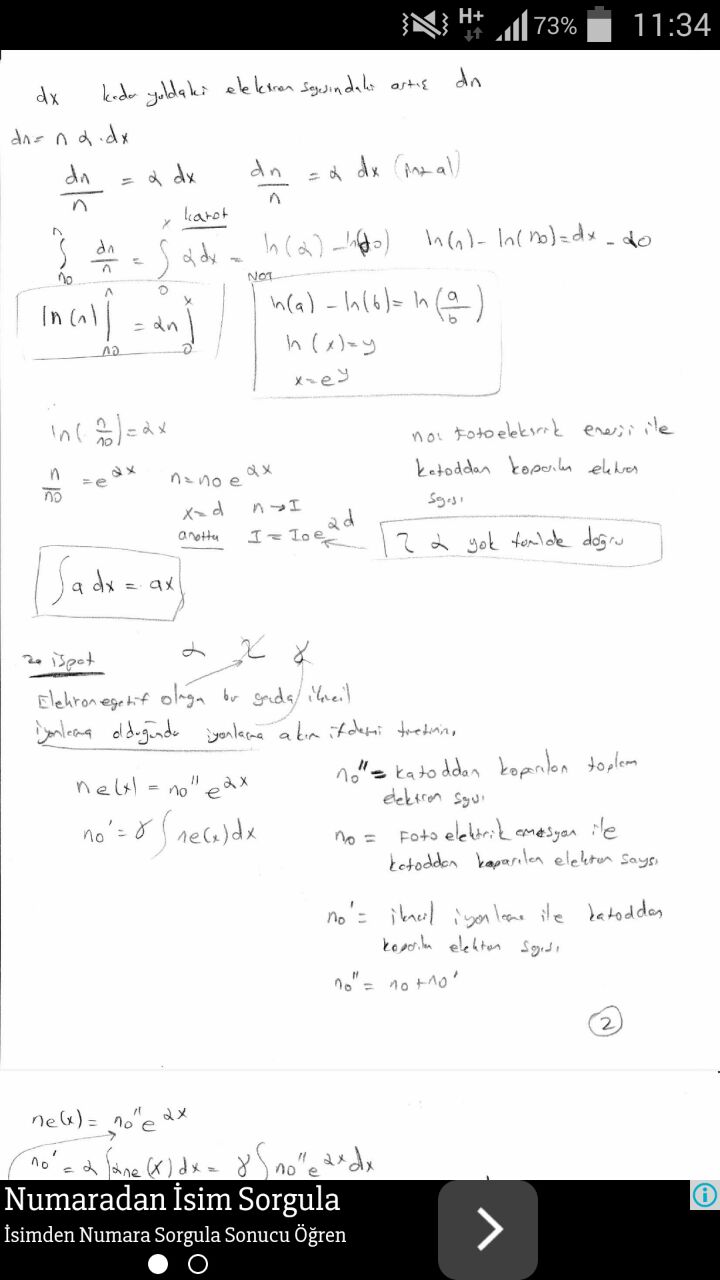 H+ 73% 11:34
dx kadar yoldaki elektron sayısındaki artış dn
dn = n α . dx
dn/n = α dx dn/n = α dx (int al)
karot
∫ dn/n = ∫ α dx = ln(α) - ln(0) ln(n) - ln(n0) = αx - α0
NOT
ln(n) | = αn | ln(a) - ln(b) = ln(a/b)
ln(x) = y
x = e^y
ln(n/n0) = αx
n0: Fotoelektrik enerji ile
n/n0 = e^αx n = n0 e^αx katoddan koparılan elektron
sayısı
x = d n → I
anotta I = I0 e^αd
α yok formülde doğru
∫ a dx = ax
2. ispat α γ
Elektronegatif olmayan bir gazda ikincil
iyonlama olduğunda iyonlama akım ifadesini türetiniz.
ne(x) = n0'' e^αx n0'' = katoddan koparılan toplam
elektron sayısı
n0' = γ ∫ ne(x) dx n0 = Foto elektrik emisyon ile
katoddan koparılan elektron sayısı
n0' = ikincil iyonlama ile katoddan
koparılan elektron sayısı
n0'' = n0 + n0'
2
ne(x) = n0'' e^αx
n0' = α ∫ αne(x) dx = γ ∫ n0'' e^αx dx
Numaradan İsim Sorgula
İsimden Numara Sorgula Sonucu Öğren